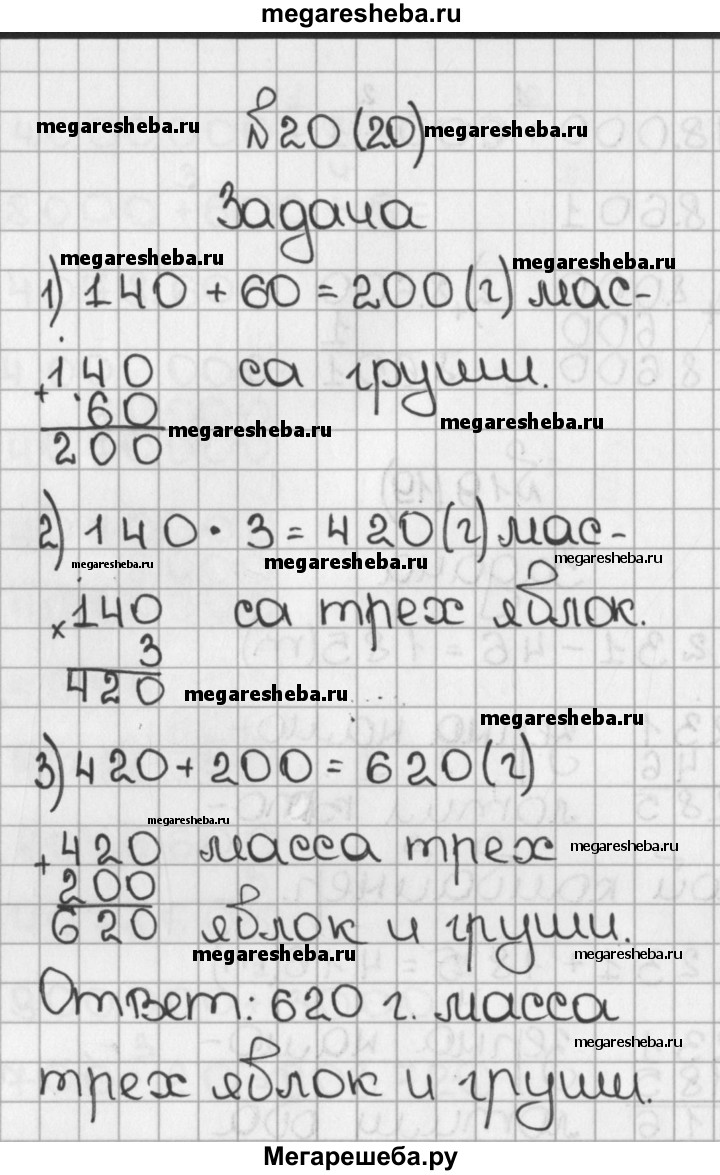 megaresheba.ru
megaresheba.ru №20 (20) megaresheba.ru
Задача
megaresheba.ru megaresheba.ru
1) 140 + 60 = 200 (г) мас-
+ 140 са груши.
60 megaresheba.ru
200 megaresheba.ru
2) 140 · 3 = 420 (г) мас-
megaresheba.ru megaresheba.ru megaresheba.ru
× 140 са трех яблок.
3
420 megaresheba.ru
megaresheba.ru
3) 420 + 200 = 620 (г)
megaresheba.ru
+ 420 масса трех megaresheba.ru
200
620 яблок и груши.
megaresheba.ru megaresheba.ru
Ответ: 620 г. масса
megaresheba.ru
трех яблок и груши.
Мегарешеба.ру